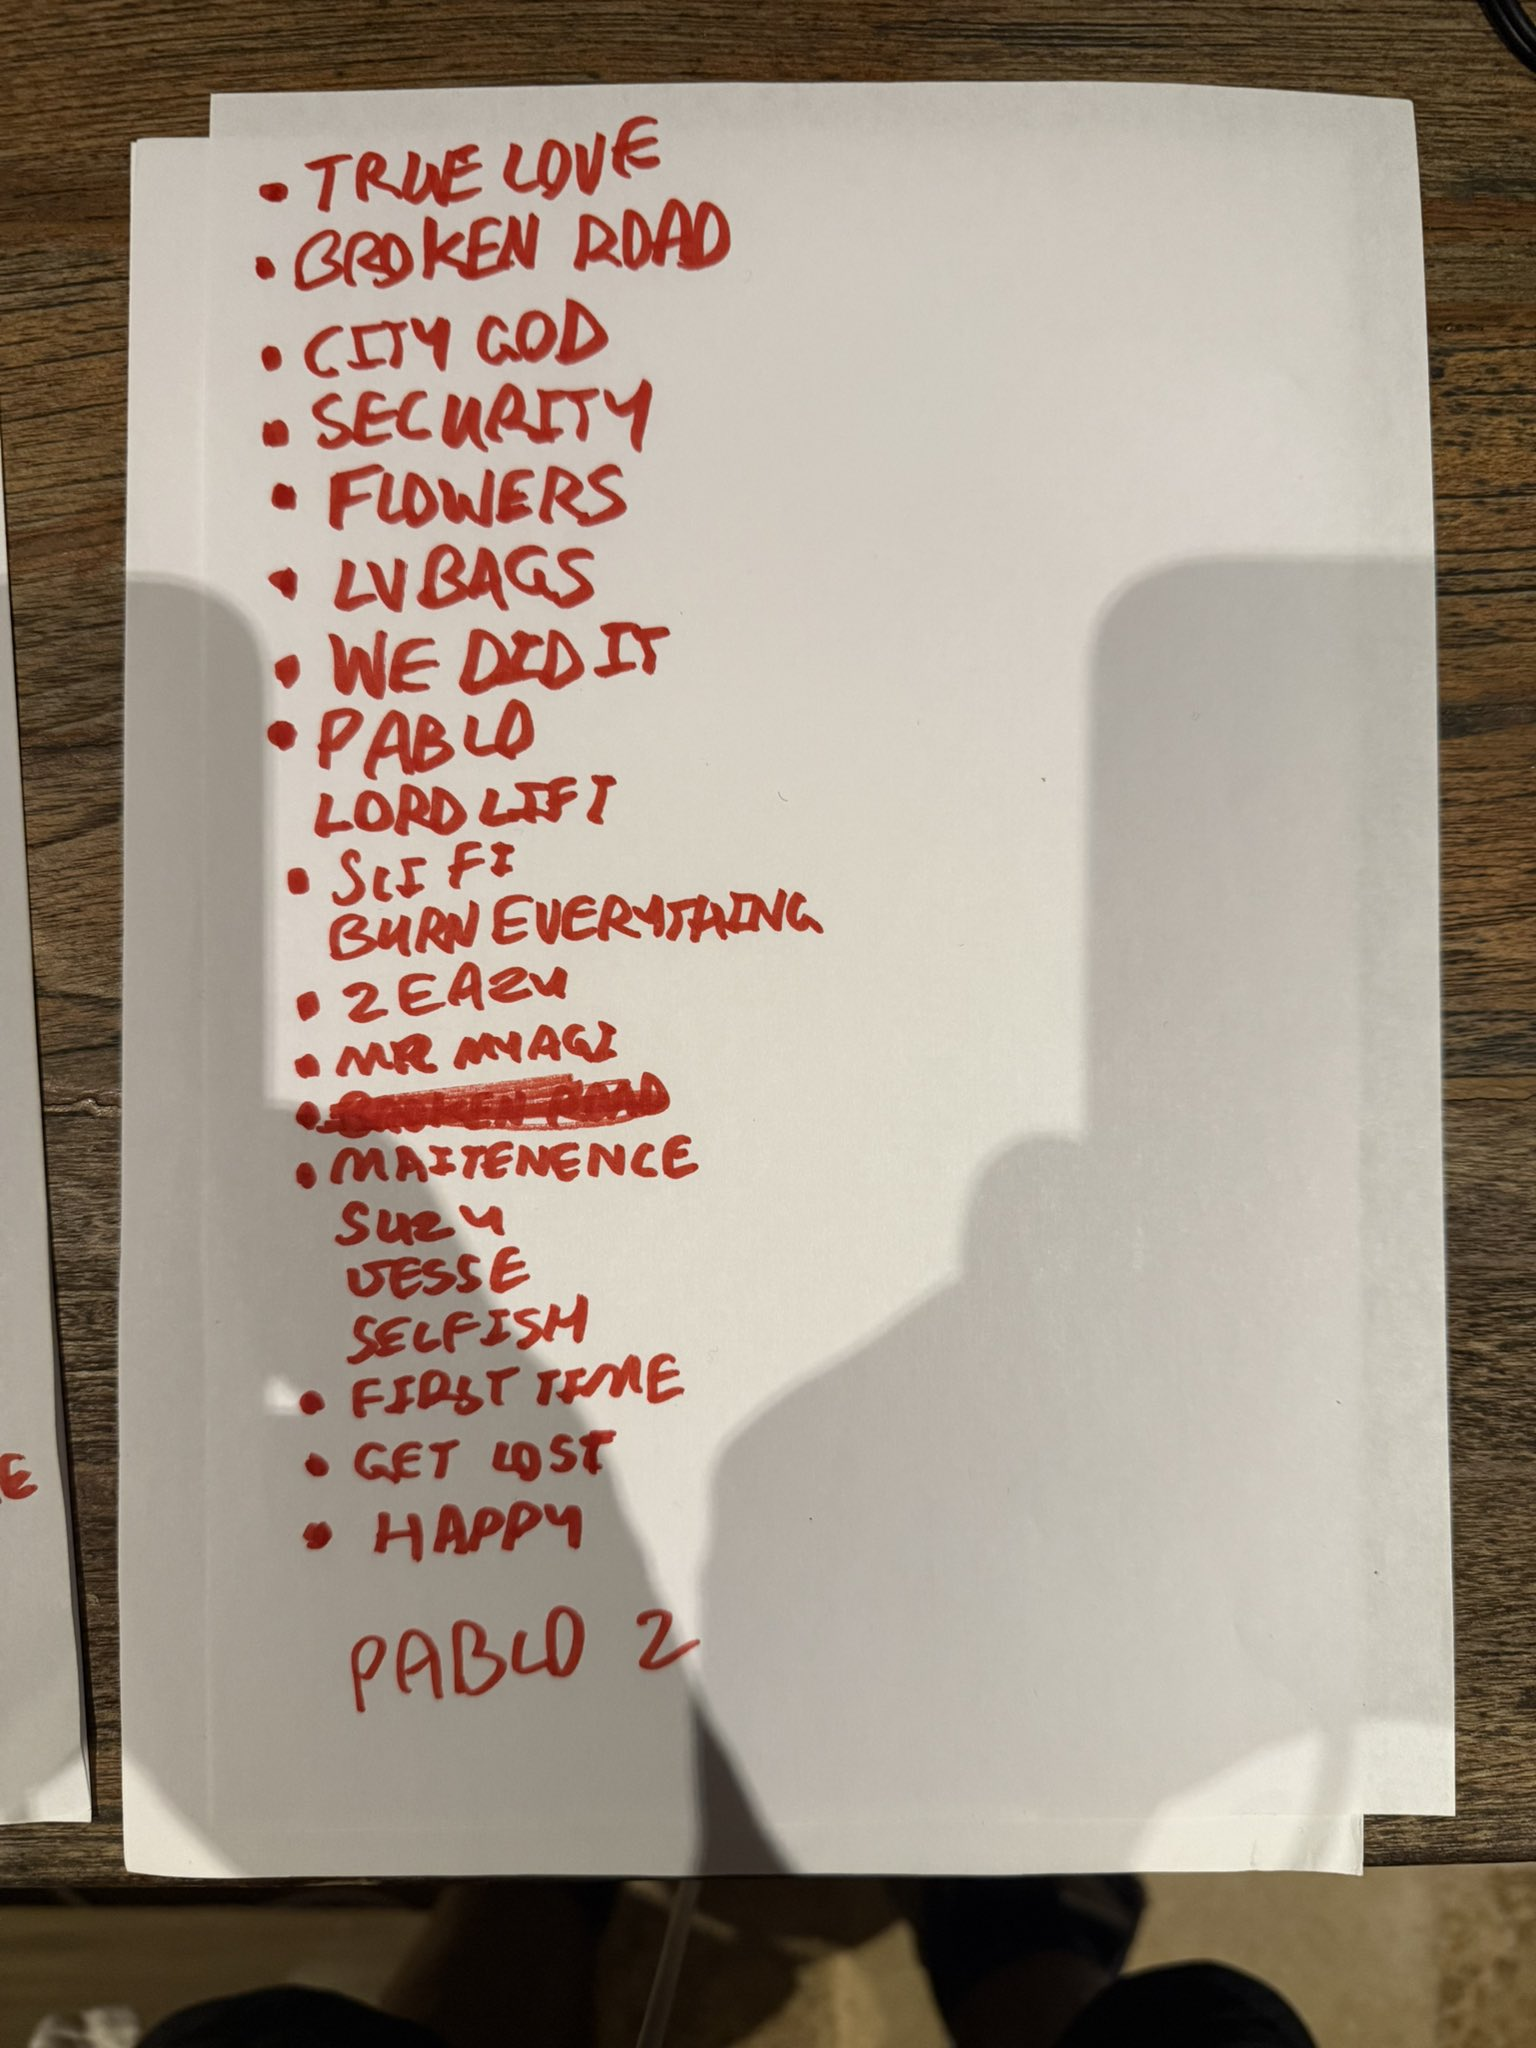 • TRUE LOVE
• BROKEN ROAD
• CITY GOD
• SECURITY
• FLOWERS
• LV BAGS
• WE DID IT
• PABLO
LORD LIFT
• SCI FI
BURN EVERYTHING
• 2 EAZY
• MR MYAGI
• BROKEN ROAD
• MAITENENCE
SUZY
JESSE
SELFISH
• FIRST TIME
• GET LOST
• HAPPY
PABLO 2
E